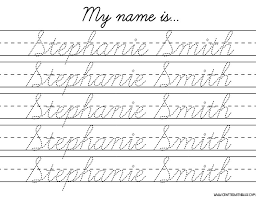 My name is...
Stephanie Smith
Stephanie Smith
Stephanie Smith
Stephanie Smith
Stephanie Smith